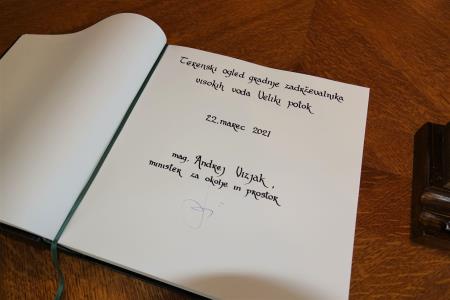 Terenski ogled gradnje zadrževalnika
visokih voda Veliki potok
22. marec 2021
mag. Andrej Vizjak,
minister za okolje in prostor